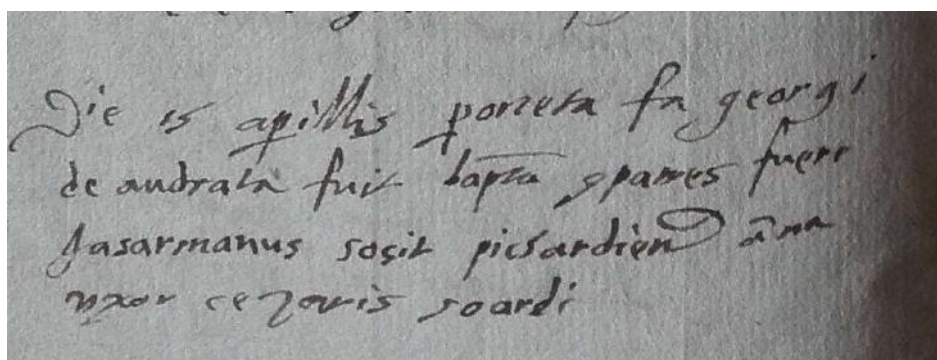 Die 15 aprillis porreta fa georgi
de andrata fuit bapta gpatres fuere
gasarmanus sosit picsardien ana
uxor cezaris soardi